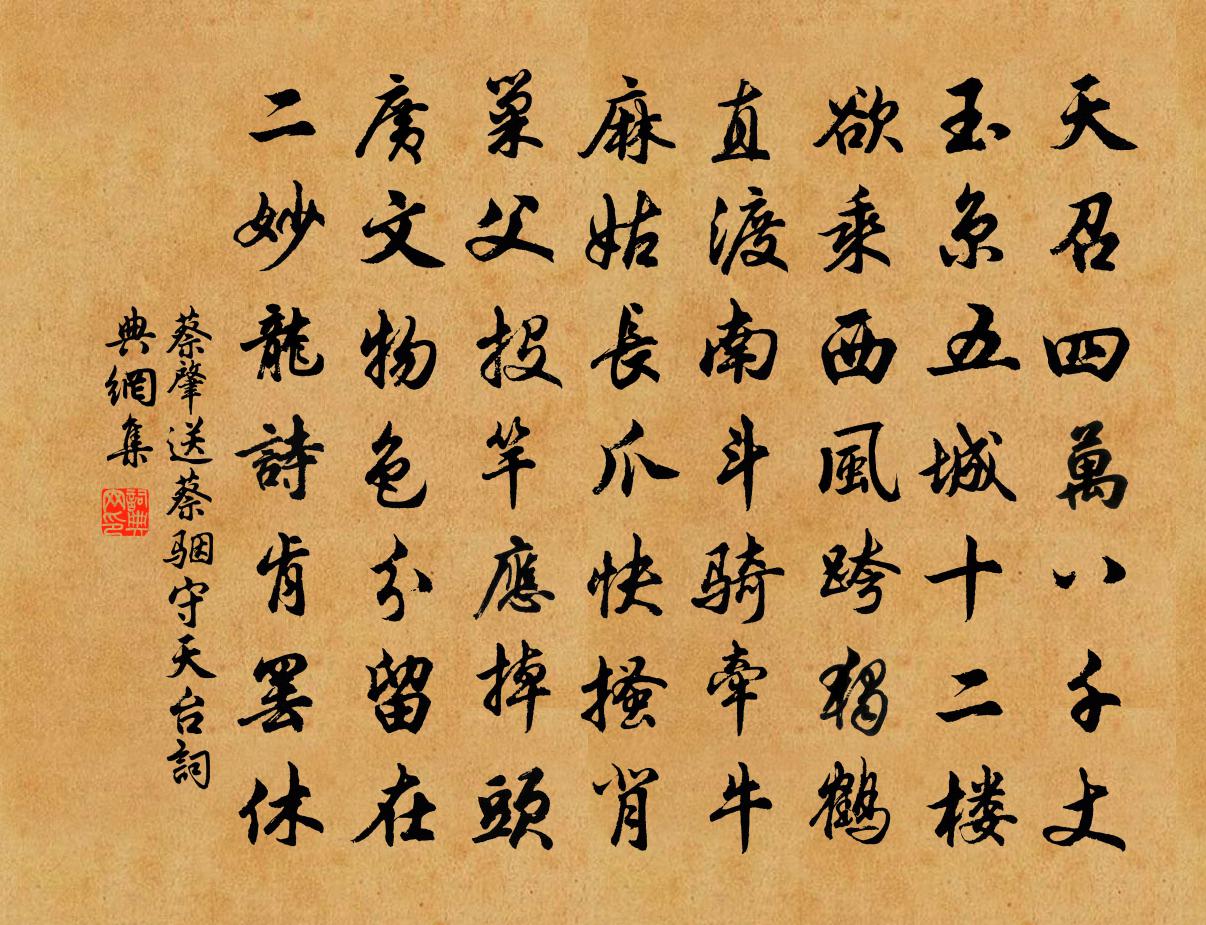 天召四萬八千丈
玉京五城十二楼
欲乘西風跨獨鶴
直渡南斗騎牽牛
麻姑長爪快搔背
巢父投竿應掉頭
廣文物色分留在
二妙龍詩肯罢休
蔡肇送蔡駰守天台詞
典網集
詞典網印